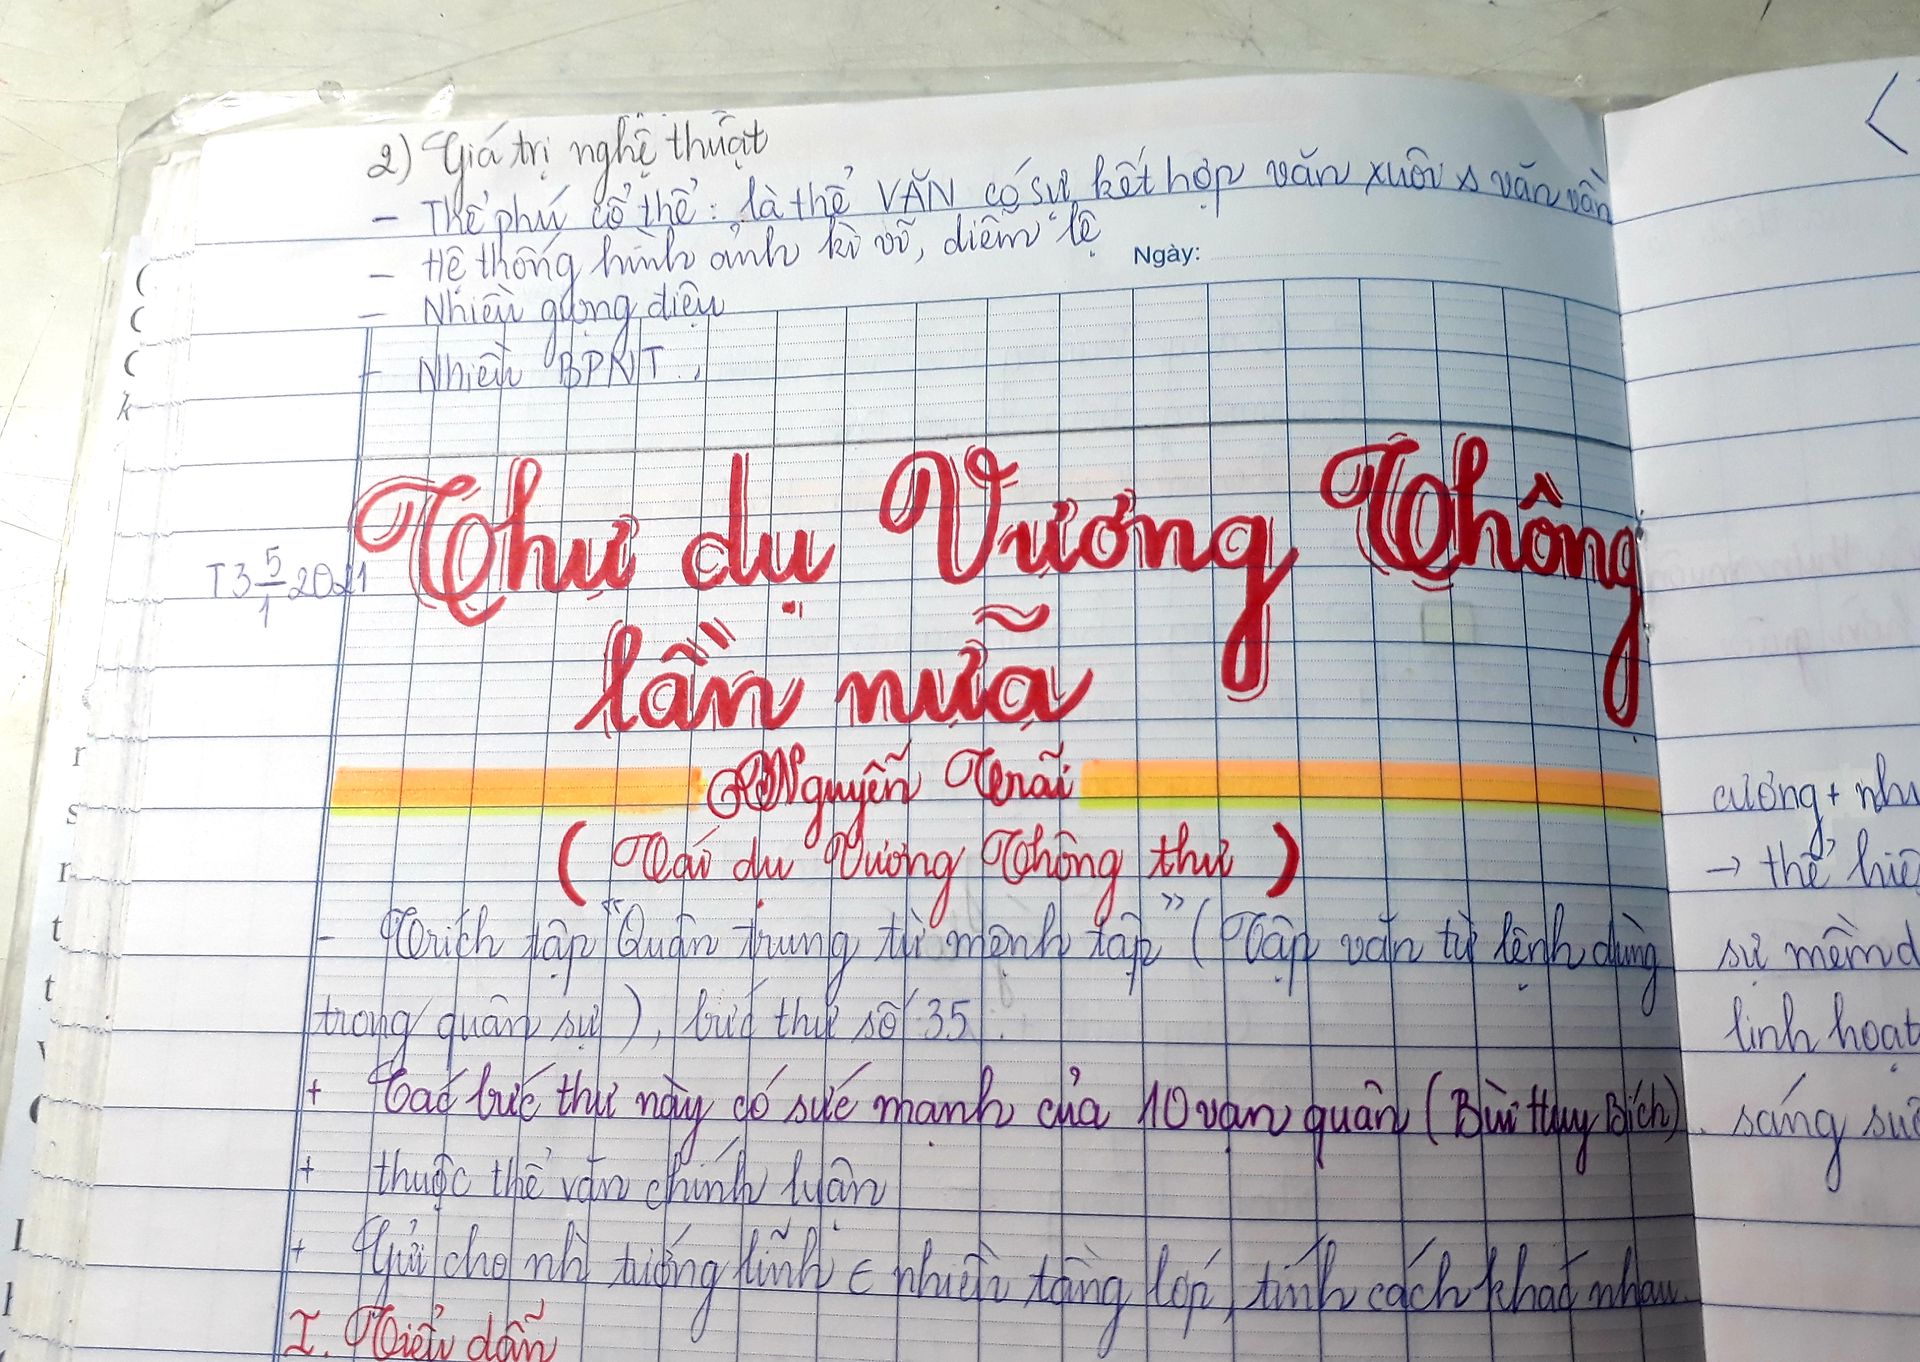 2) Giá trị nghệ thuật
- Thể phú cổ thể: là thể VĂN có sự kết hợp văn xuôi & văn vần
- Hệ thống hình ảnh kì vĩ, diễm lệ
Ngày:
- Nhiều giọng điệu
- Nhiều BPNT.
T3 5/1 2021
Thư dụ Vương Thông
lần nữa
Nguyễn Trãi
( Tái dụ Vương Thông thư )
- Trích tập "Quân trung từ mệnh tập" ( Tập văn từ lệnh dùng
trong quân sự ), bức thư số 35.
+ Các bức thư này có sức mạnh của 10 vạn quân ( Bùi Huy Bích).
+ thuộc thể văn chính luận
+ Gửi cho nh~ tướng lĩnh ∈ nhiều tầng lớp, tính cách khác nhau.
I. Tiểu dẫn
cương + như
→ thể hiệ
sự mềm d
linh hoạt
sáng suố